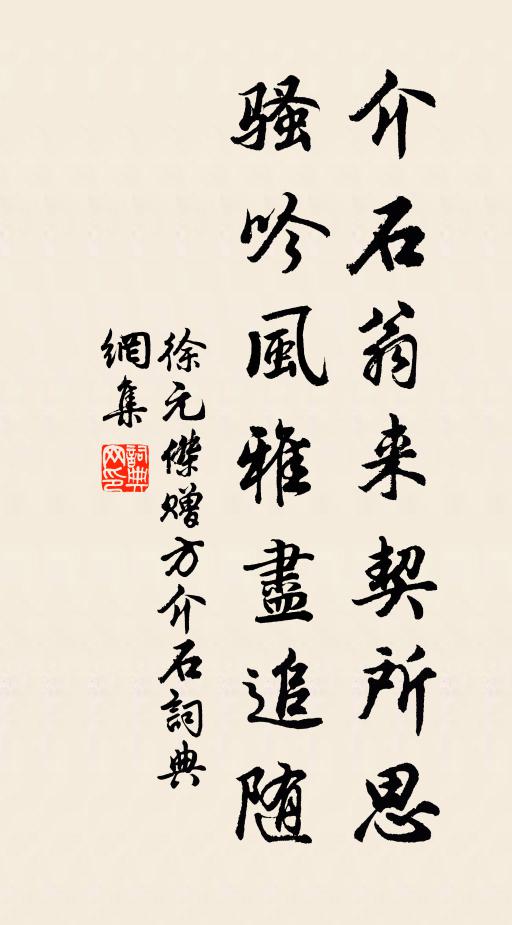 介石翁来契所思
骚吟風雅盡追随
徐元傑赠方介石詞典
網集
詞典网印